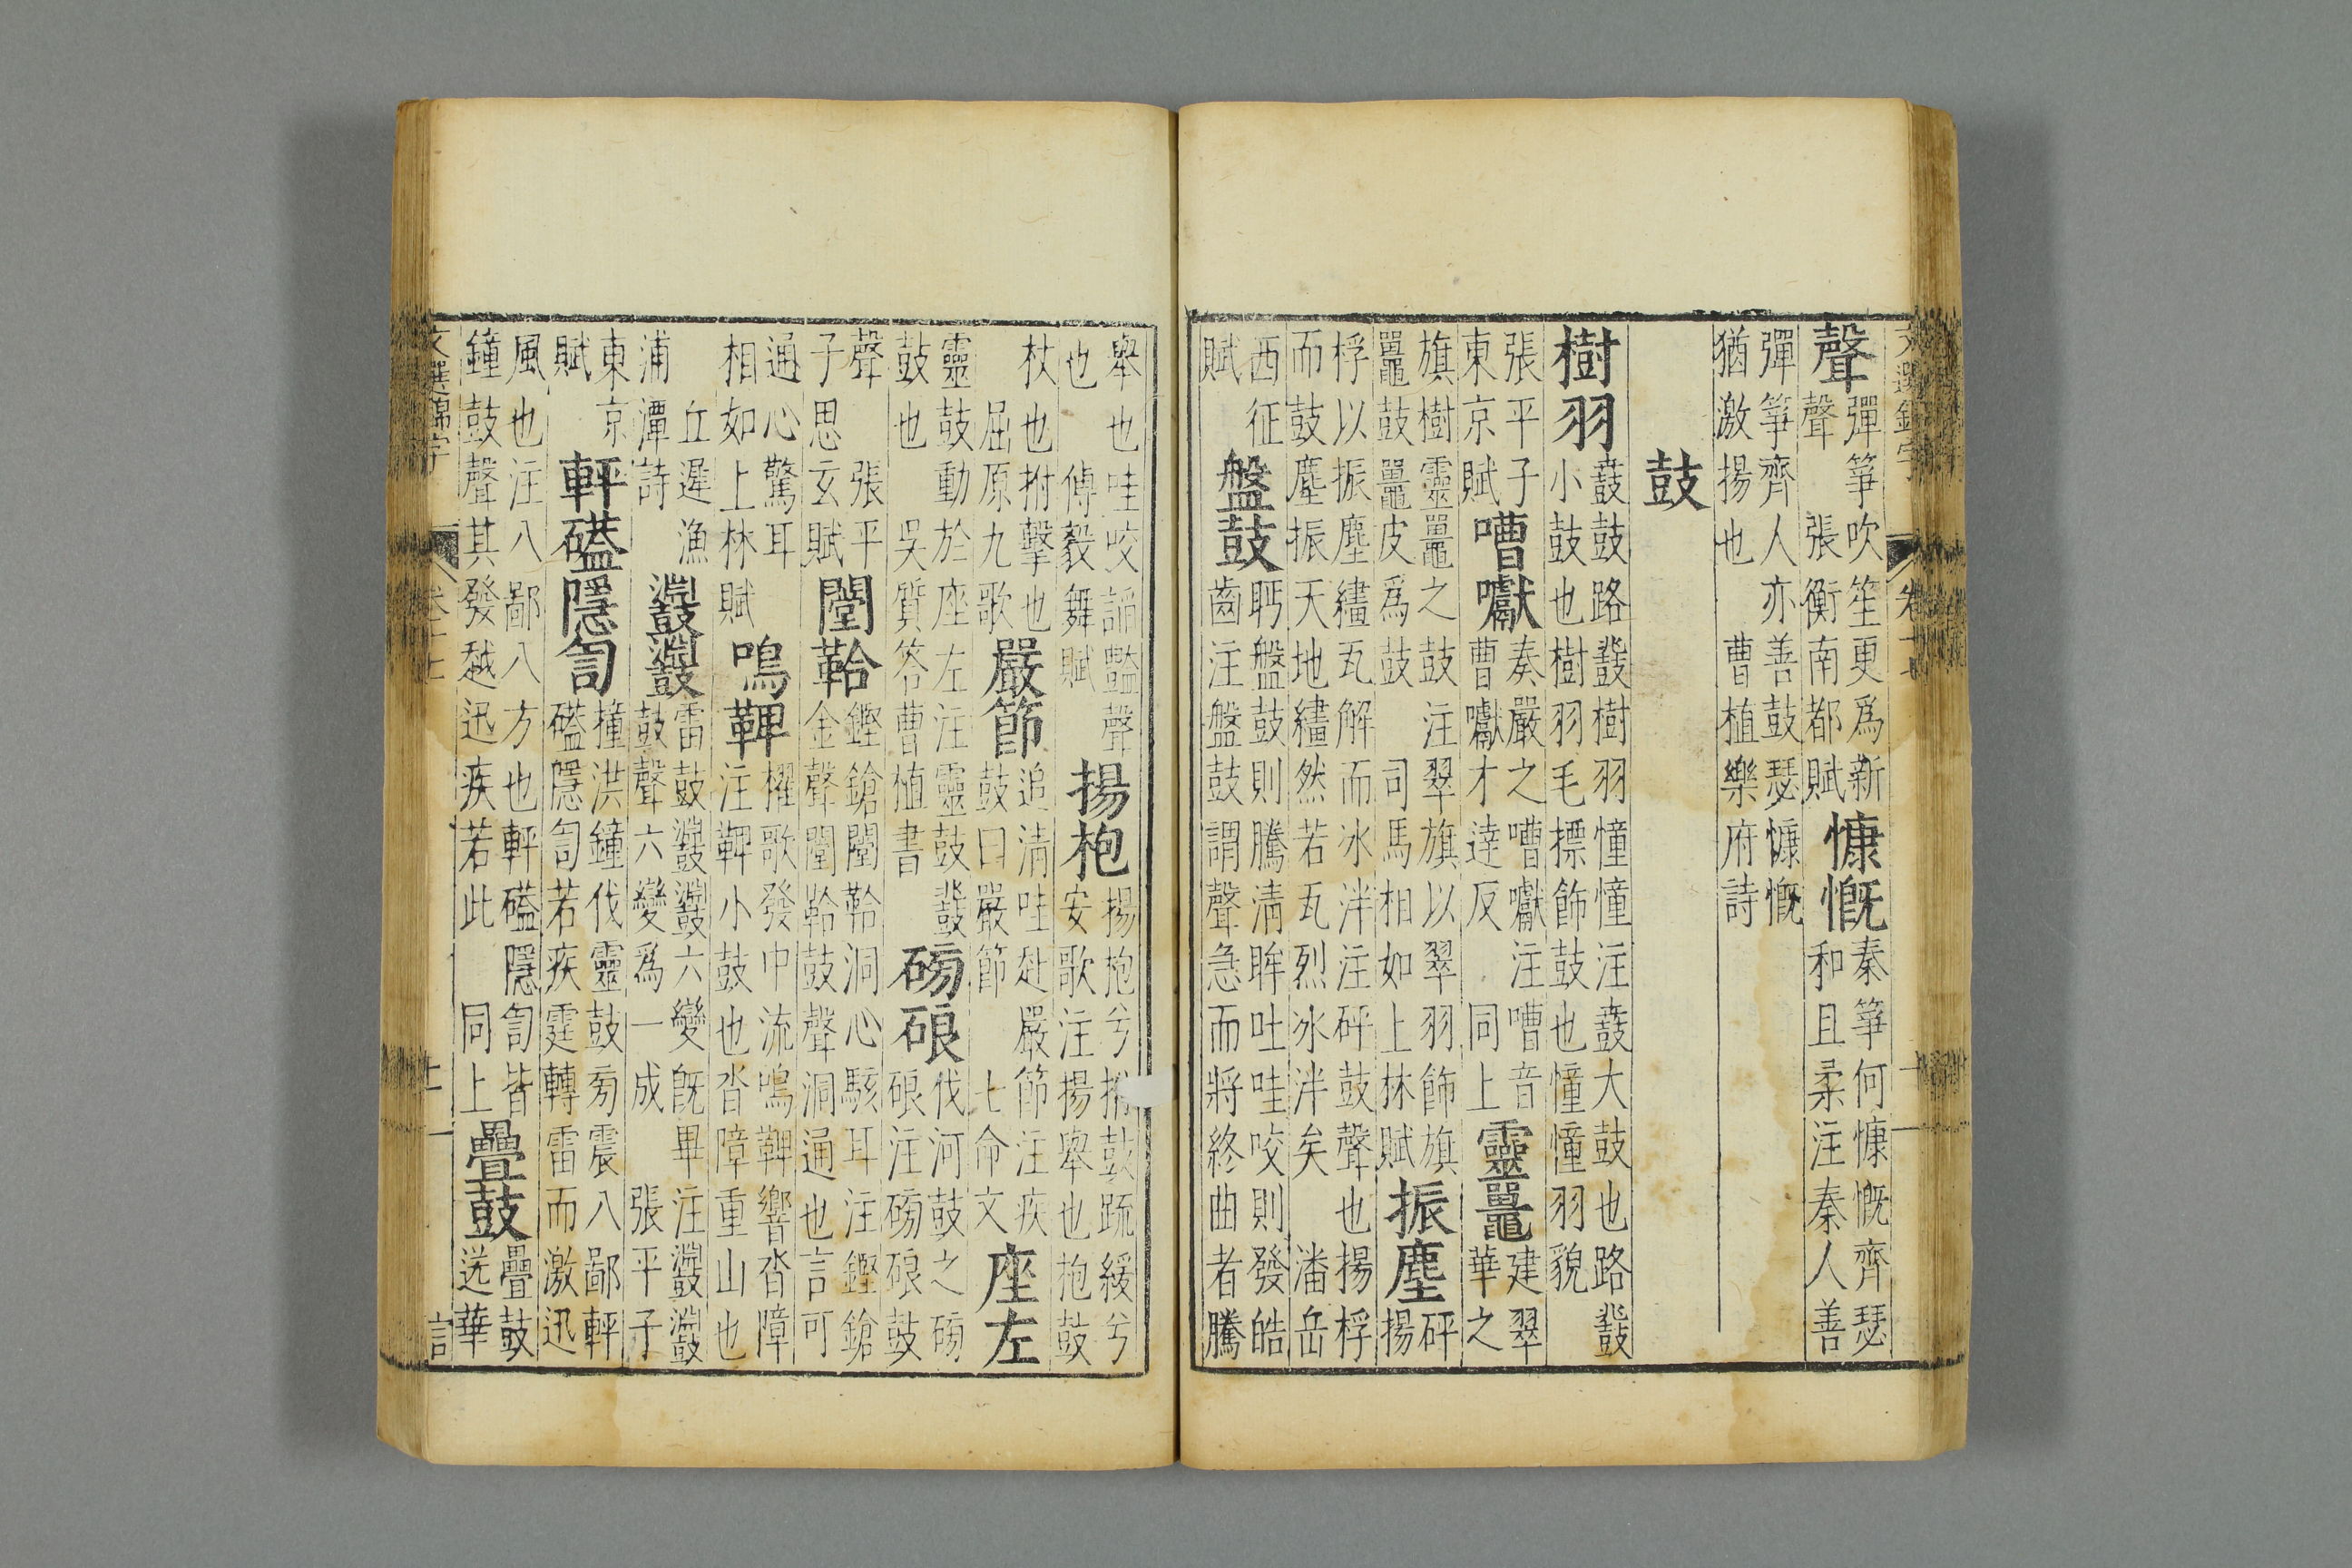 聲
彈箏吹笙更爲新
聲 張衡南都賦
慷慨
秦箏何慷慨齊瑟
和且柔注秦人善
彈箏齊人亦善鼓瑟慷慨
猶激揚也 曹植樂府詩
鼓
樹羽
鼖鼓路鼗樹羽憧憧注鼖大鼓也路鼗
小鼓也樹羽毛摽飾鼓也憧憧羽貌
張平子
東京賦
嘈囐
奏嚴之嘈囐注嘈音
曹囐才逹反 同上
靈鼉
建翠
華之
旗樹靈鼉之鼓注翠旗以翠羽飾旗
鼉鼓鼉皮爲鼓 司馬相如上林賦
振塵
砰
揚
桴以振塵繣瓦解而冰泮注砰鼓聲也揚桴
而鼓塵振天地繣然若瓦烈冰泮矣 潘岳
西征
賦
盤鼓
眄盤鼓則騰淸眸吐哇咬則發皓
齒注盤鼓謂聲急而將終曲者騰
舉也哇咬謡豔聲
也 傅毅舞賦
揚枹
揚抱兮拊鼓疏緩兮
安歌注揚舉也抱鼓
杖也拊擊也
屈原九歌
嚴節
追淸哇赴嚴節注疾
鼓曰嚴節 七命文
座左
靈鼓動於座左注靈鼓鼗
鼓也 吳質答曹植書
磅硠
伐河鼓之磅
硠注磅硠鼓
聲 張平
子思玄賦
闛鞈
鏗鎗闛鞈洞心駭耳注鏗鎗
金聲闛鞈鼓聲洞通也言可
通心驚耳
相如上林賦
鳴鞞
櫂歌發中流鳴鞞響沓障
注鞞小鼓也沓障重山也
丘遲漁
浦潭詩
鼘鼘
雷鼓鼘鼘六變旣畢注鼘鼘
鼓聲六變爲一成 張平子
東京
賦
軒磕隱訇
撞洪鐘伐靈鼓旁震八鄙軯
磕隱訇若疾霆轉雷而激迅
風也注八鄙八方也軒磕隱訇皆
鐘鼓聲其發越迅疾若此 同上
疊鼓
疊鼓
送華
文選錦字
卷十七
十一
言